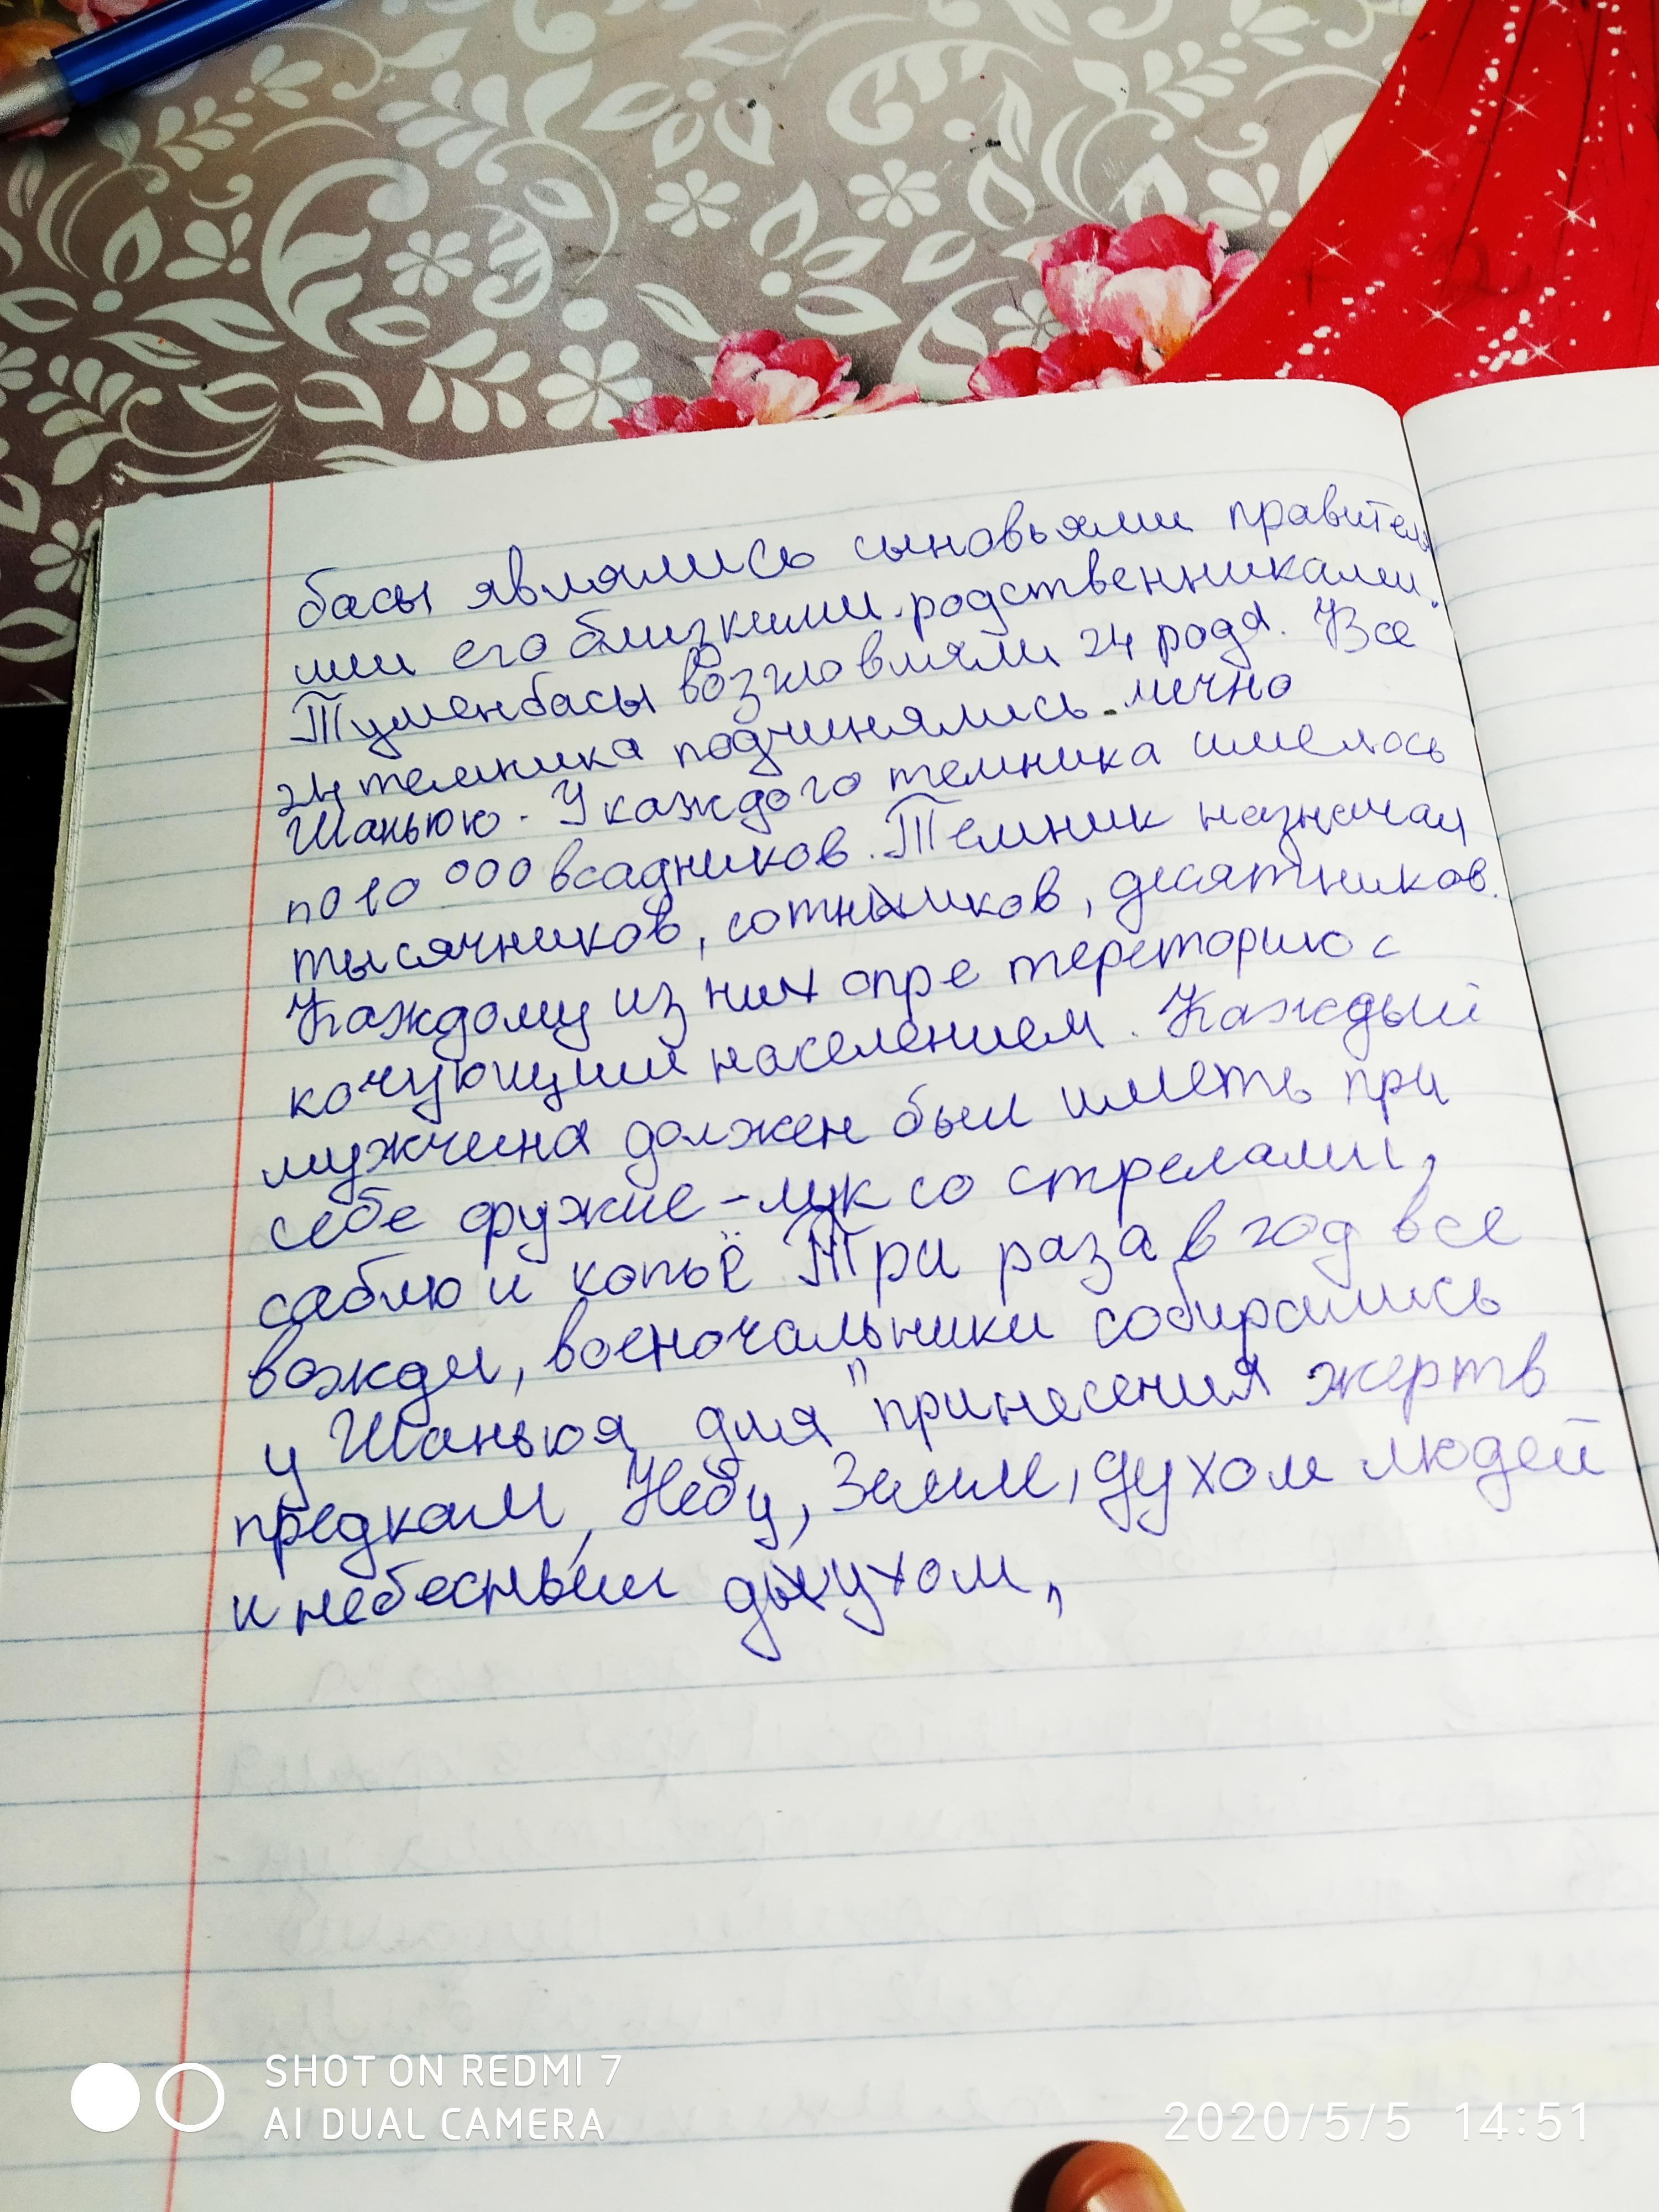 басы являлись сыновьями правителя
или его близкими родственниками.
Туменбасы возгловляли 24 рода. Все
24 темника подчинялись лично
Шаньюю. У каждого темника имелось
по 10 000 всадников. Темник назначал
тысячников, сотников, десятников.
Каждому из них опре тереторию с
кочующим населением. Каждый
мужчина должен был иметь при
себе оружие - лук со стрелами,
саблю и копьё Три раза в год все
вожди, военочальники собирались
у Шаньюя для "принесения жертв
предкам, Небу, Земле, духом людей
и небесным духом"
SHOT ON REDMI 7
AI DUAL CAMERA
2020/5/5 14:51